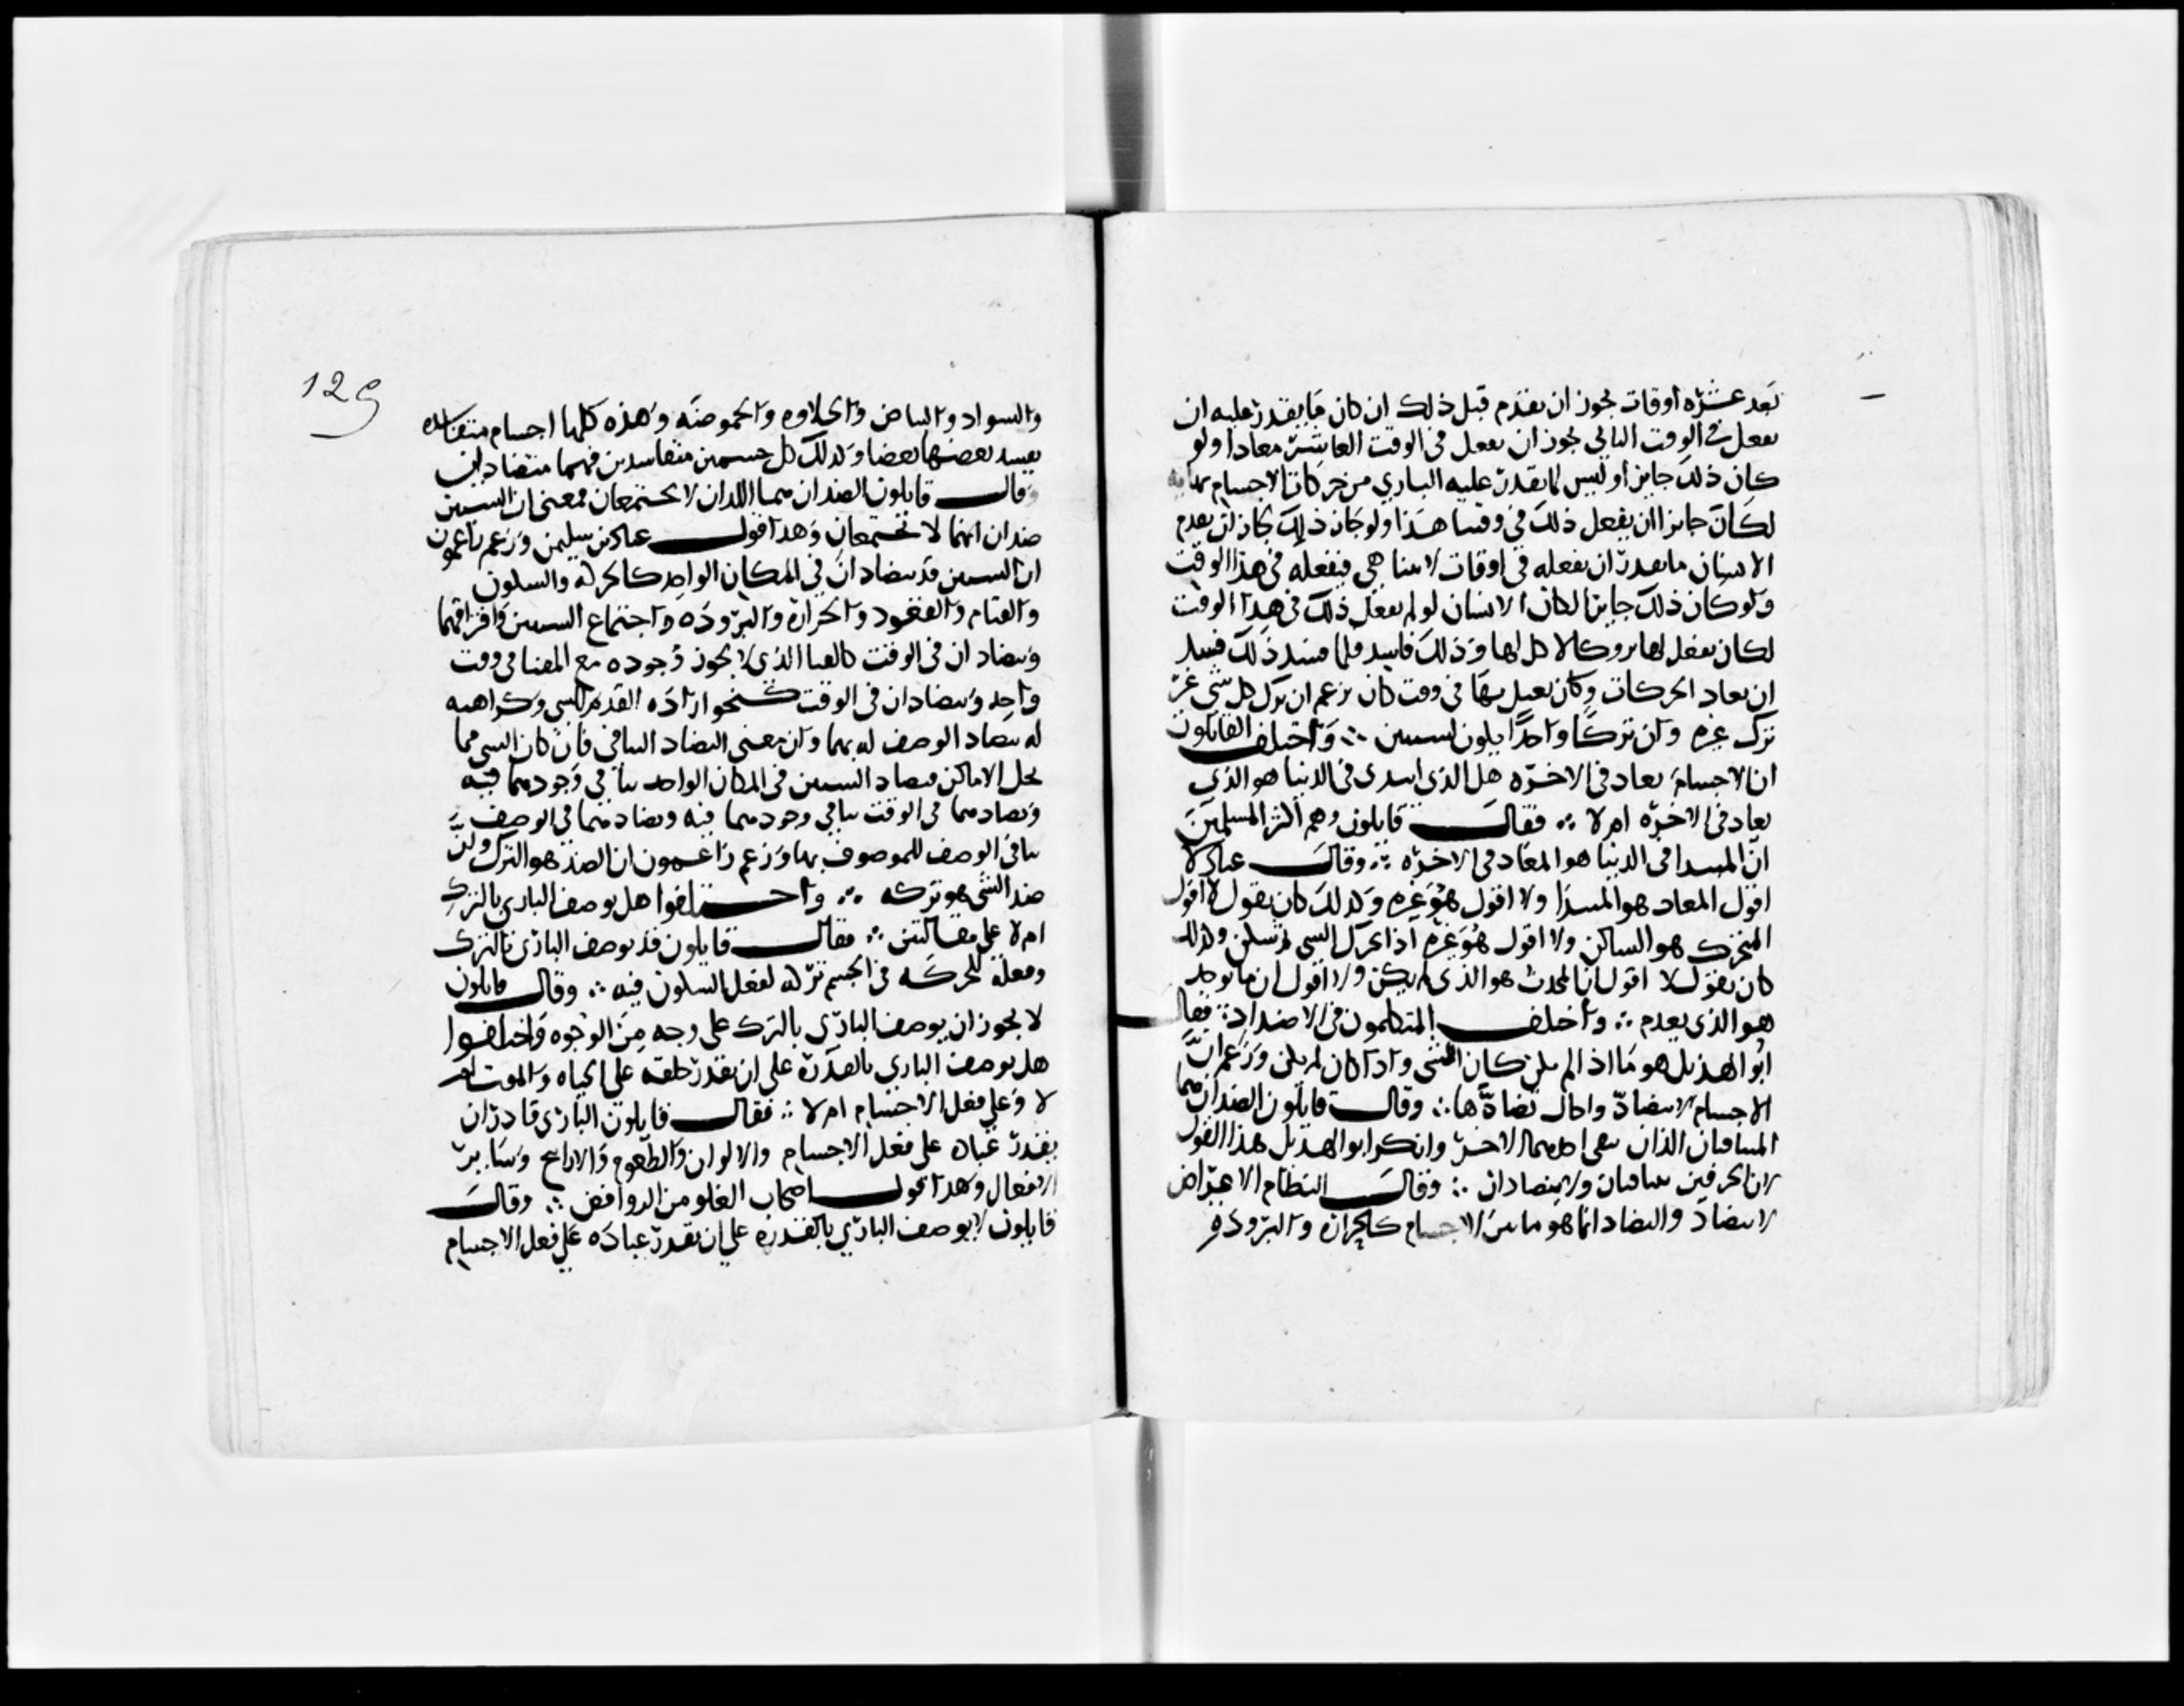 بعد عشره اوقات يجوز ان يقدم قبل ذلك ان كان ما يقدر عليه ان
يفعل في الوقت الثاني يجوز ان يفعل في الوقت العاشر معادا ولو
كان ذلك جايزا وليس لما يقدر عليه الباري من حركات الاجسام نهايه
لكان جايزا ان يفعل ذلك في وقتنا هذا ولو جاز ذلك لجاز ان يقدم
الانسان ما يقدر ان يفعله في اوقات لا تتناهى فيفعله في هذا الوقت
ولو كان ذلك جايزا لكان الانسان لو لم يفعل ذلك في هذا الوقت
لكان يفعل لها تروكا لا كل لها وذلك فاسد فلما فسد ذلك فسد
ان يعاد الحركات وكان يعتل بها في وقت كان يزعم ان ترك كل شي غير
ترك غيره وان تركا واحدا يكون لشيين ∴ واختلف القايلون
ان الاجسام تعاد في الاخره هل الذي ابتدى في الدنيا هو الذي
يعاد في الاخره ام لا ∴ فقال قايلون وهم اكثر المسلمين
ان المبتدا في الدنيا هو المعاد في الاخره ∴ وقال عباد لا
اقول المعاد هو المبتدا ولا اقول هو غيره وكذلك كان يقول لا اقول
المتحرك هو الساكن ولا اقول هو غيره اذا تحرك الشي ثم سكن وكذلك
كان يقول لا اقول ان المحدث هو الذي لم يكن ولا اقول ان ما يوجد
هو الذي يعدم ∴ واختلف المتكلمون في الاضداد ∴ فقال
ابو الهذيل هو ما اذا لم يكن كان الشي واذا كان لم يكن وزعم ان
الاجسام لا تتضاد واحال تضادها ∴ وقال قايلون الضدان هما
المتنافيان الذان ينفي احدهما الاخر وانكر ابو الهذيل هذا القول
لان الحرفين يتنافيان ولا يتضادان ∴ وقال النظام الاعراض
لا تتضاد والتضاد انما هو ما بين الاجسام كالحراره والبروده
129
والسواد والبياض والحلاوه والحموضه وهذه كلها اجسام متفاسده
يفسد بعضها بعضا وكذلك كل جسمين متفاسدين فهما متضادان
وقال قايلون الضدان هما اللذان لا يجتمعان فمعنى ان الشيين
ضدان انهما لا يجتمعان وهذا قول عباد بن سليمن وزعم زاعمون
ان الشيين قد يتضادان في المكان الواحد كالحركه والسكون
والقيام والقعود والحراره والبروده واجتماع الشيين وافتراقهما
ويتضادان في الوقت كالفنا الذي لا يجوز وجوده مع المفنا في وقت
واحد ويتضادان في الوقت كنحو اراده القديم للشي وكراهيه
له يتضاد الوصف له بهما وان معنى التضاد التنافي فان كان الشي مما
يحل الاماكن فتضاد الشيين في المكان الواحد تنافي وجودهما فيه
وتضادهما في الوقت تنافي وجودهما فيه وتضادهما في الوصف
تنافي الوصف للموصوف بهما وزعم زاعمون ان الضد هو الترك وان
ضد الشي هو تركه ∴ واختلفوا هل يوصف الباري بالترك
ام لا على مقالتين ∴ فقال قايلون قد يوصف الباري بالترك
وفعله للحركه في الجسم تركه لفعل السكون فيه ∴ وقال قايلون
لا يجوز ان يوصف الباري بالترك على وجه من الوجوه واختلفوا
هل يوصف الباري بالقدره على ان يقدر خلقه على الحياه والموت ام
لا وعلى فعل الاجسام ام لا ∴ فقال قايلون الباري قادر ان
يقدر عباده على فعل الاجسام والالوان والطعوم والاراييح وساير
الافعال وهذا قول اصحاب الغلو من الروافض ∴ وقال
قايلون لا يوصف الباري بالقدره على ان يقدر عباده على فعل الاجسام